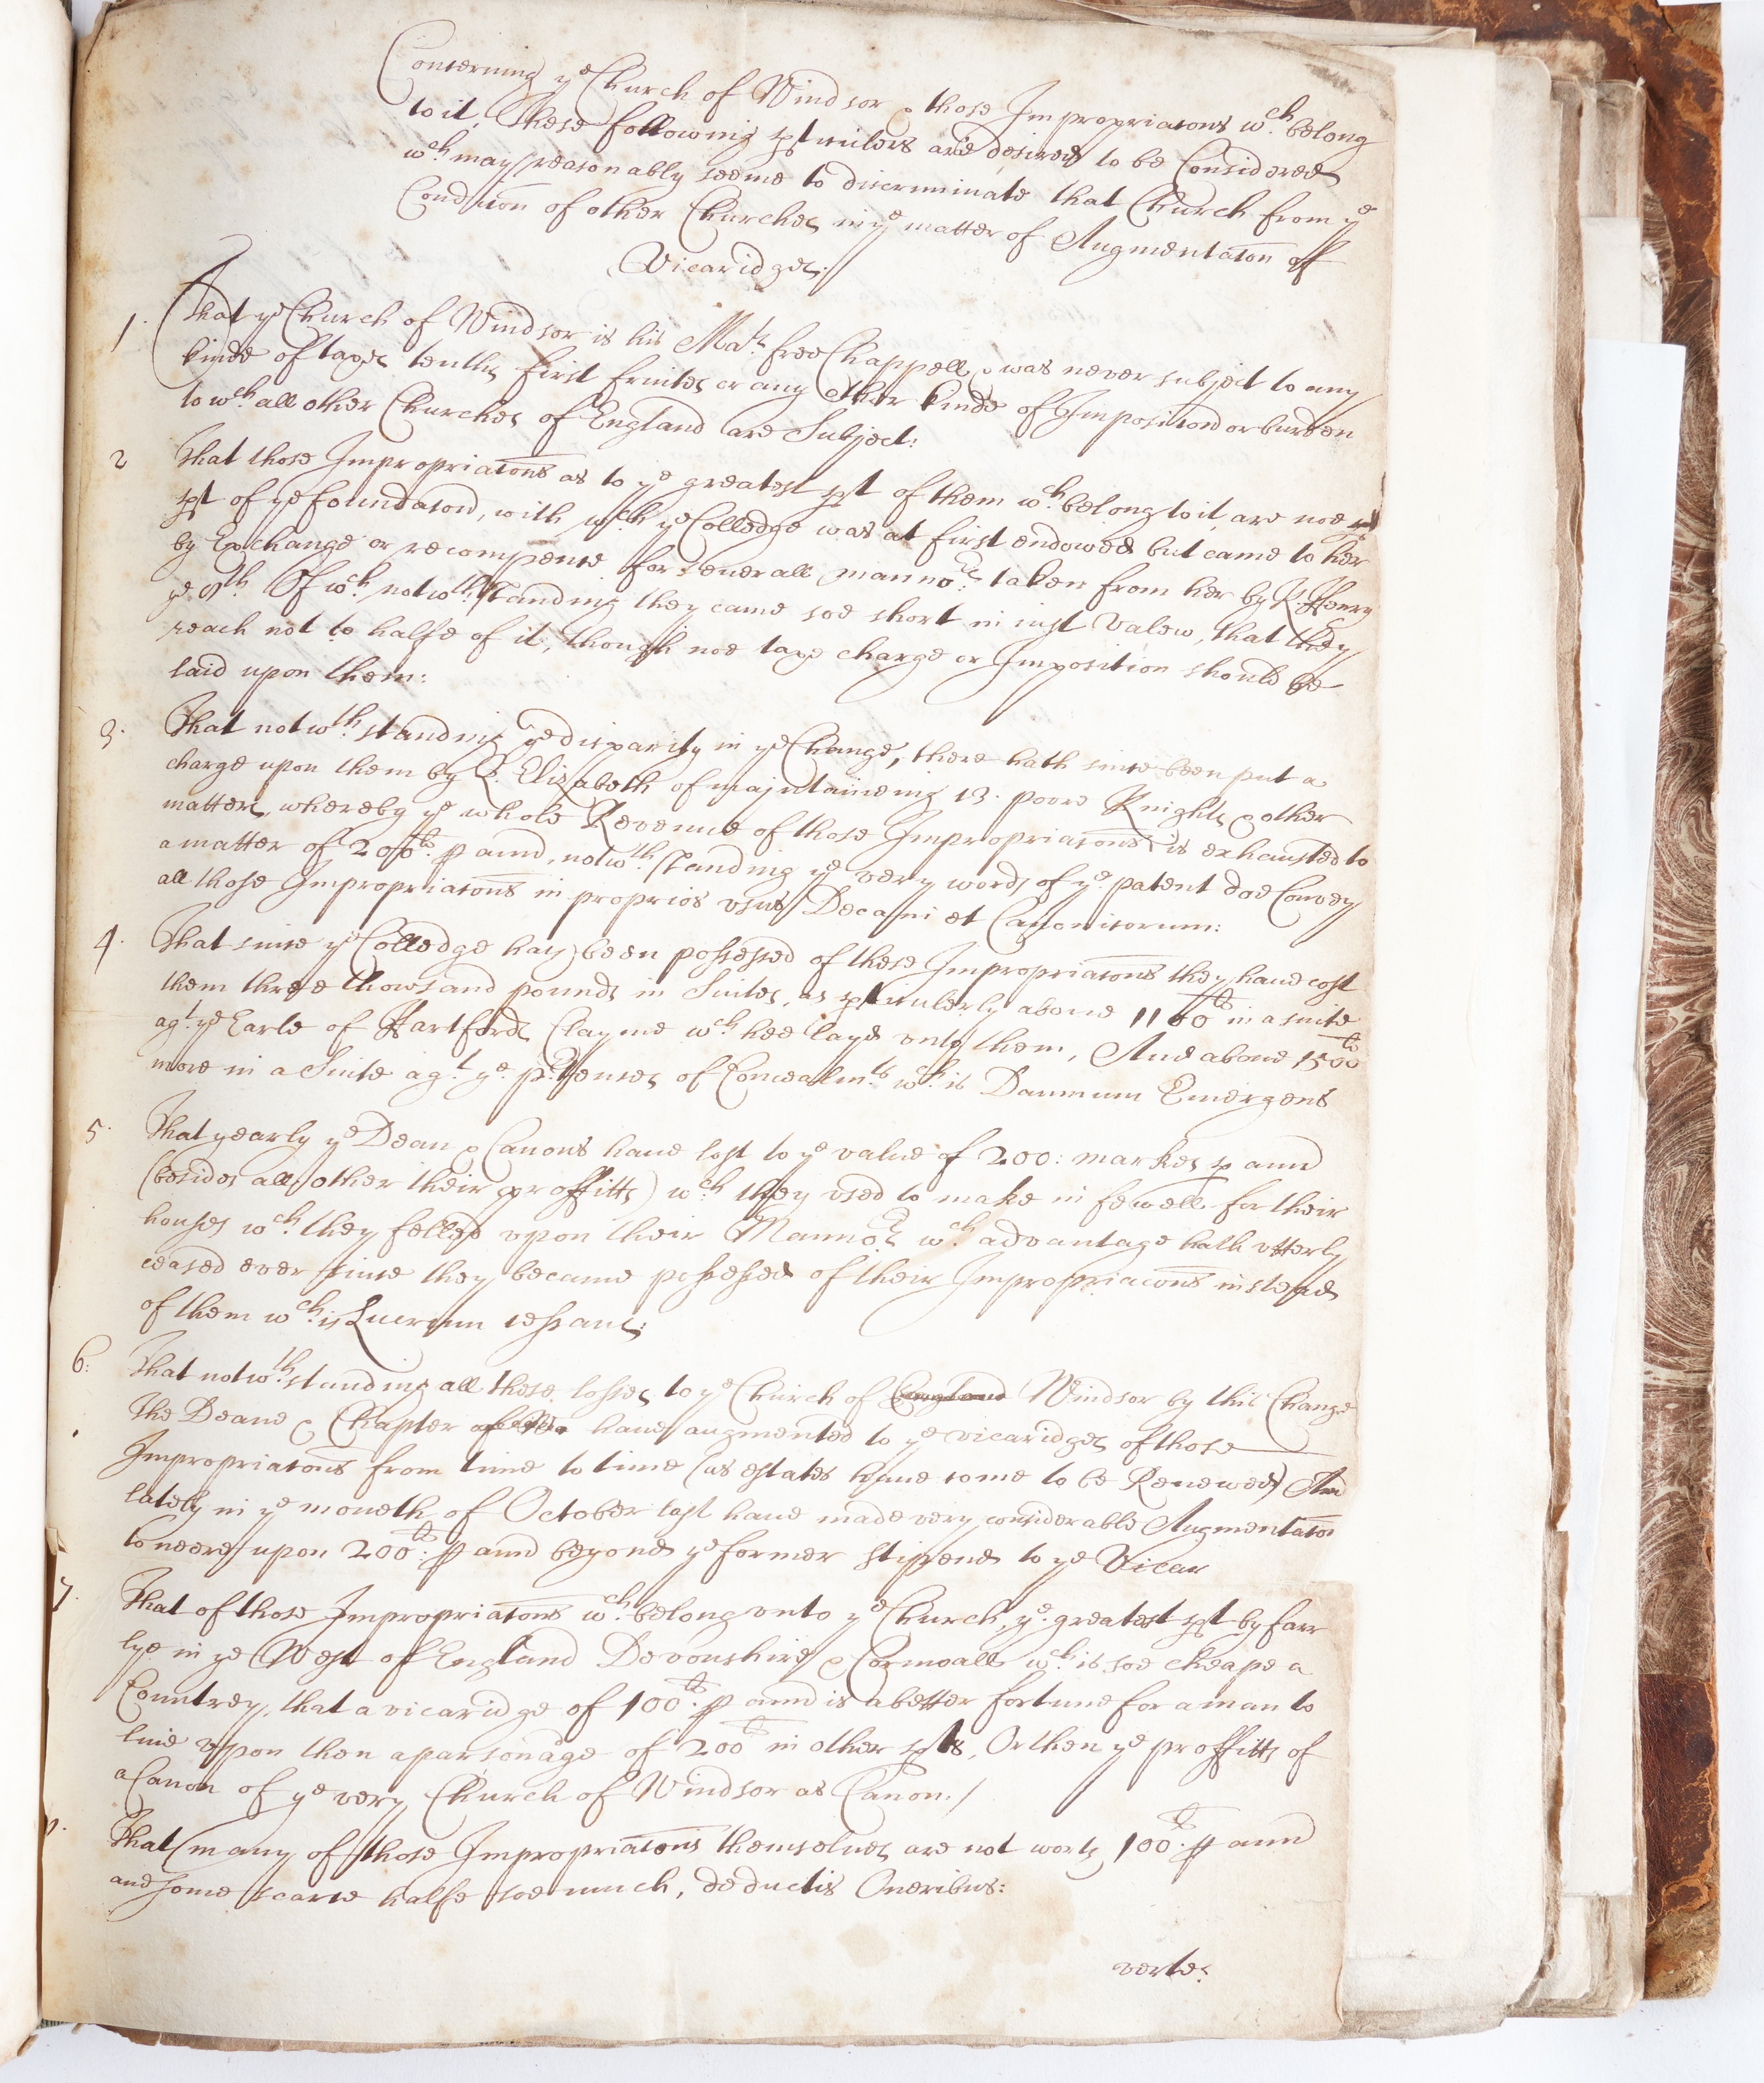 Concerning ye Church of Windsor & those Impropriacons wch belong
to it, These following pticulers are desired to be Considered
wch may reasonably seeme to discriminate that Church from ye
Condicion of other Churches in ye matter of Augmentacon of
Vicaridges:
1. That ye Church of Windsor is his Mats free Chappell & was never subject to any
kinde of taxes tenths first fruites or any other kinde of Imposicion or burden
to wch all other Churches of England are Subject:
2 That those Impropriacons as to ye greatest pt of them wch belong to it, are noe
pt of ye foundacon, with wch ye Colledge was at first endowed but came to her
by Exchange or recompence for seuerall mannors taken from her by K. Henry
ye 8th. Of wch notwthstanding they came soe short in iust Valew, that they
reach not to halfe of it, though noe taxe charge or Imposition should be
laid upon them:
3. That notwthstanding ye disparity in ye Change, there hath since been put a
charge upon them by Q. Elizabeth of maintaineing 13. poore Knights & other
matters, whereby ye whole Revenue of those Impropriacons is exhausted to
a matter of 200ls. p annū, notwthstanding ye very words of ye patent doe Convey
all those Impropriacons in proprios vsus Decani et Canonicorum:
4. That since ye Colledge hath been possessed of these Impropriacons they haue cost
them three thowsand pounds in Suites, as pticulerly aboue 1100ls in a suite
agt ye Earle of Hartfords Clayme wch hee layd vnto them, And aboue 1500ls
more in a Suite agt ye ptenses of Concealmts wch is Damnum Emergens
5. That yearly ye Dean & Canons haue lost to ye value of 200: markes p annū
(besides all other their proffitts) wch they vsed to make in fewell for their
houses wch they felled vpon their Mannors wch advantage hath vtterly
ceased ever since they became possessed of their Impropriacons instead
of them wch is Lucrum cessans:
6: That notwthstanding all these losses to ye Church of England Windsor by this Change
the Deane & Chapter haue augmented to ye vicaridges of those
Impropriacons from time to time (as estates haue come to be Renewed) And
lately in ye moneth of October last haue made very considerable Augmentacon
to neere upon 200ls. p annū beyond ye former stipend to ye Vicar
7. That of those Impropriacons wch belong vnto ye Church, ye greatest pt by farr
lye in ye West of England Devonshire & Cornwall wch is soe cheape a
Countrey, that a vicaridge of 100ls. p annū is a better fortune for a man to
liue vpon then a parsonage of 200ls in other pts, Or then ye proffitts of
a Canon of ye very Church of Windsor as Canon./
That many of those Impropriacons themselues are not worth 100ls. p annū
and some scarce halfe soe much, deductis Oneribus:
verte: